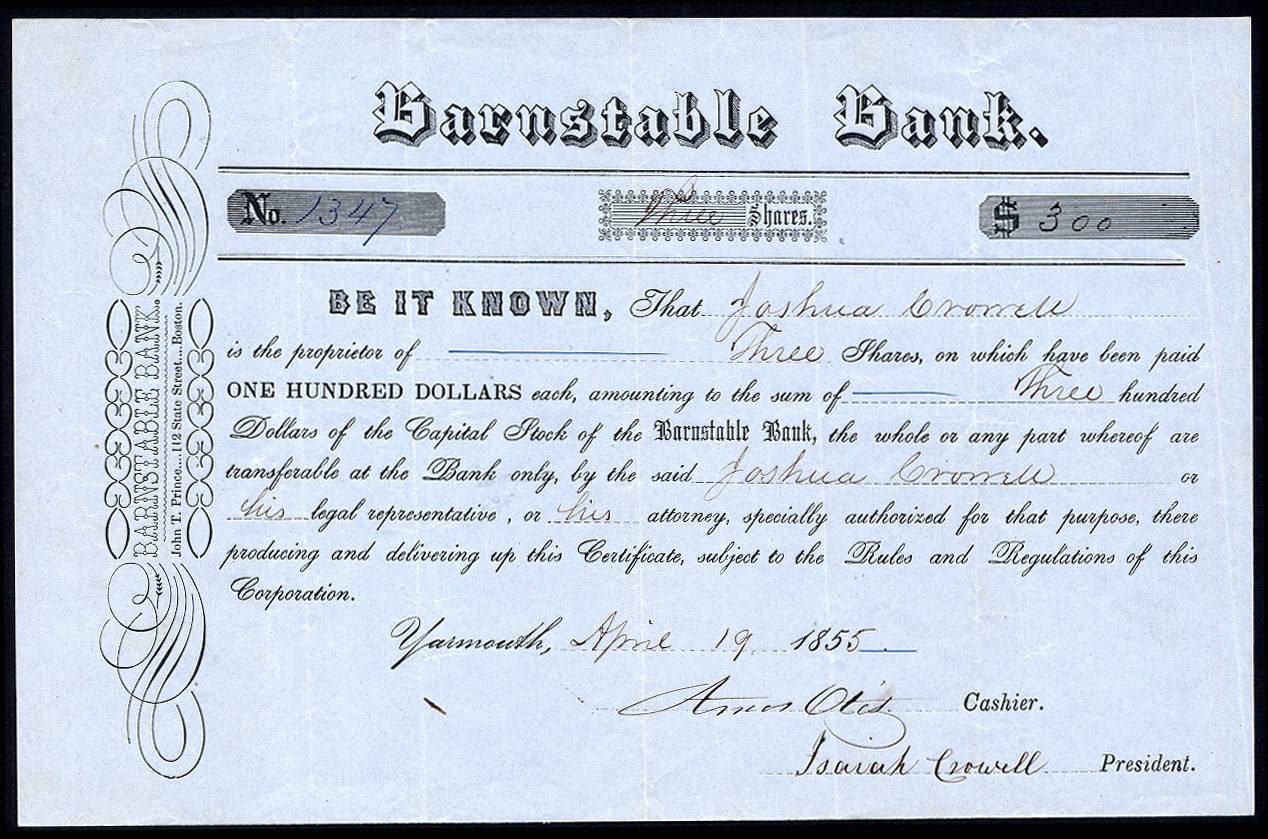 Barnstable Bank.
No. 1347 Three Shares. $ 300
BE IT KNOWN, That Joshua Crowell
is the proprietor of Three Shares, on which have been paid
ONE HUNDRED DOLLARS each, amounting to the sum of Three hundred
Dollars of the Capital Stock of the Barnstable Bank, the whole or any part whereof are
transferable at the Bank only, by the said Joshua Crowell or
his legal representative, or his attorney, specially authorized for that purpose, there
producing and delivering up this Certificate, subject to the Rules and Regulations of this
Corporation.
Yarmouth, April 19 1855
Amos Otis Cashier.
Isaiah Crowell President.
BARNSTABLE BANK.
John T. Prince....112 State Street....Boston.